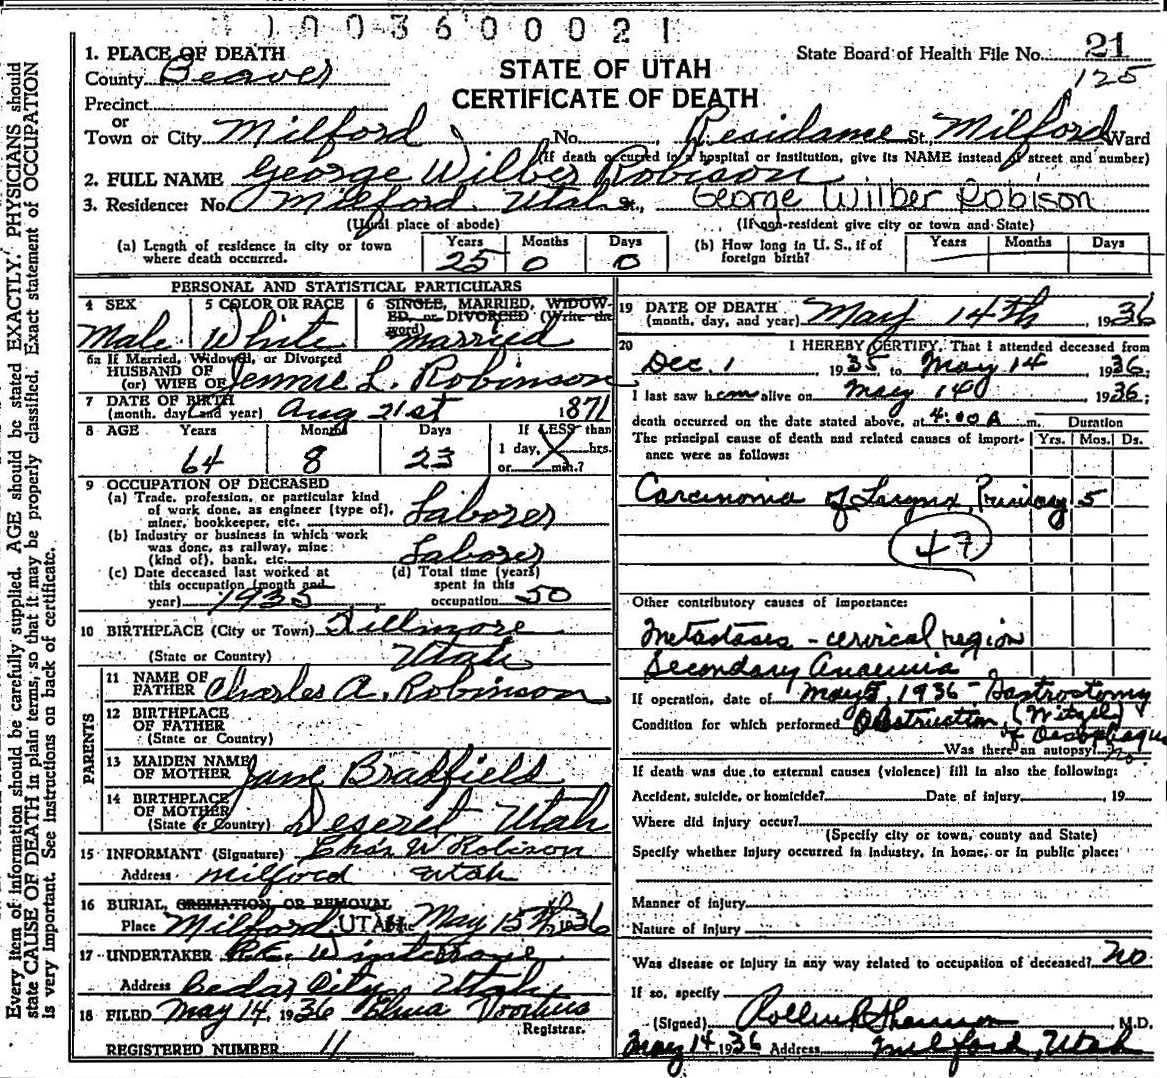 10036 00021
1. PLACE OF DEATH
County Beaver
State Board of Health File No. 21
125
STATE OF UTAH
CERTIFICATE OF DEATH
Precinct
or
Town or City Milford No. Residance St. Milford Ward
(If death occurred in a hospital or institution, give its NAME instead of street and number)
2. FULL NAME George Wilber Robison
3. Residence: No. Milford Utah St., George Wilber Robison
(Usual place of abode) (If non-resident give city or town and State)
(a) Length of residence in city or town where death occurred. Years 25 Months 0 Days 0
(b) How long in U. S., if of foreign birth? Years Months Days
PERSONAL AND STATISTICAL PARTICULARS
4 SEX Male
5 COLOR OR RACE White
6 SINGLE, MARRIED, WIDOWED, or DIVORCED (Write the word) Married
6a If Married, Widowed, or Divorced
HUSBAND OF
(or) WIFE OF Jennie L. Robinson
7 DATE OF BIRTH
(month, day and year) Aug 21st 1871
8 AGE Years 64 Months 8 Days 23 If LESS than 1 day, hrs. or min.?
9 OCCUPATION OF DECEASED
(a) Trade, profession, or particular kind of work done, as engineer (type of), miner, bookkeeper, etc. Laborer
(b) Industry or business in which work was done, as railway, mine (kind of), bank, etc. Laborer
(c) Date deceased last worked at this occupation (month and year) 1935
(d) Total time (years) spent in this occupation 50
10 BIRTHPLACE (City or Town) Fillmore
(State or Country) Utah
PARENTS
11 NAME OF FATHER Charles A. Robinson
12 BIRTHPLACE OF FATHER
(State or Country)
13 MAIDEN NAME OF MOTHER Jane Bradfield
14 BIRTHPLACE OF MOTHER
(State or Country) Deseret Utah
15 INFORMANT (Signature) Chas W Robison
Address Milford Utah
16 BURIAL, CREMATION OR REMOVAL
Place Milford, UTAH Date May 15th 1936
17 UNDERTAKER
Address Cedar City Utah
18 FILED May 14, 1936
Registrar.
REGISTERED NUMBER 11
19 DATE OF DEATH
(month, day, and year) May 14th, 1936
20 I HEREBY CERTIFY, That I attended deceased from
Dec. 1 1935 to May 14 1936;
I last saw him alive on May 14 1936;
death occurred on the date stated above, at 4:00 A m. Duration
The principal cause of death and related causes of importance were as follows: Yrs. Mos. Ds.
Carcinoma of Larynx, Primary 5
47
Other contributory causes of importance:
Metastases - cervical region
Secondary Anaemia
If operation, date of May 5, 1936 - Gastrostomy
Condition for which performed Obstruction (Witzel)
of Oesophagus
Was there an autopsy? no.
If death was due to external causes (violence) fill in also the following:
Accident, suicide, or homicide? Date of injury , 19
Where did injury occur?
(Specify city or town, county and State)
Specify whether injury occurred in industry, in home, or in public place:
Manner of injury
Nature of injury
Was disease or injury in any way related to occupation of deceased? no
If so, specify
(Signed) M.D.
May 14 1936 Address Milford, Utah
Every item of information should be carefully supplied. AGE should be stated EXACTLY. PHYSICIANS should
state CAUSE OF DEATH in plain terms, so that it may be properly classified. Exact statement of OCCUPATION
is very important. See instructions on back of certificate.